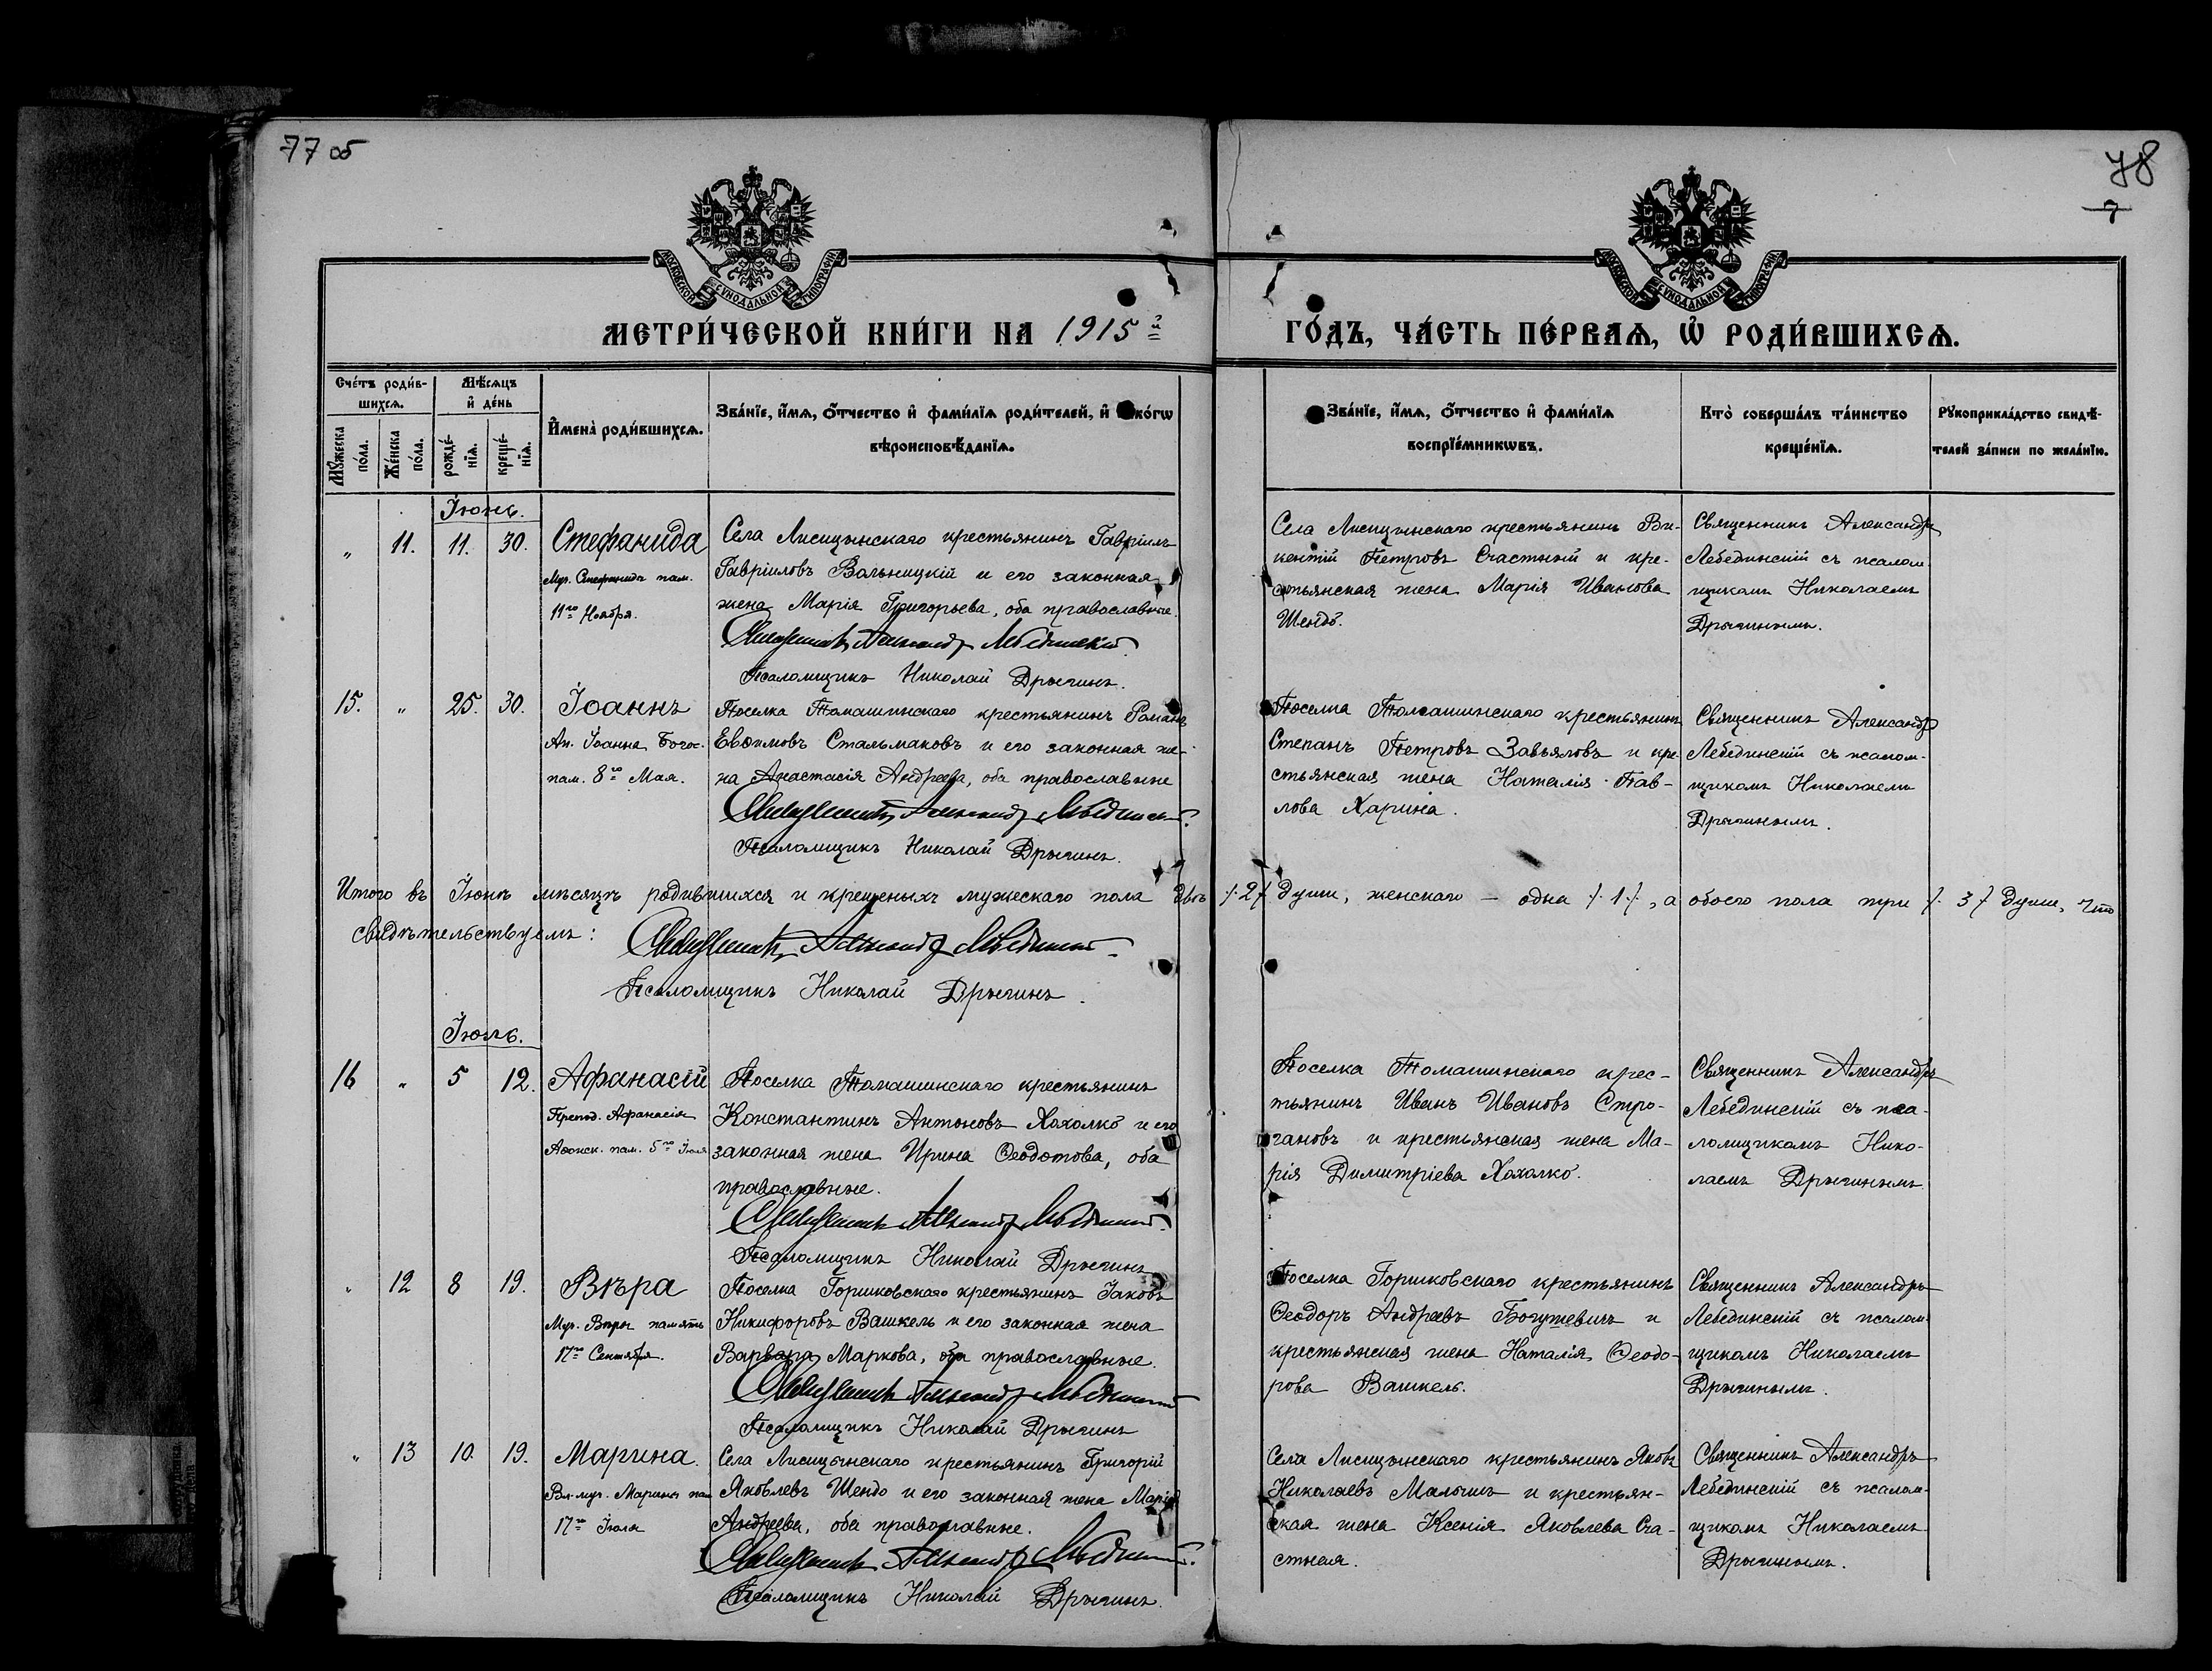 77 об
78
7
МОСКОВСКОЙ СѴНОДАЛЬНОЙ ТИПОГРАФІИ
МОСКОВСКОЙ СѴНОДАЛЬНОЙ ТИПОГРАФІИ
МЕТРИ́ЧЕСКОЙ КНИ́ГИ НА 1915й
ГО́ДЪ, ЧА́СТЬ ПЕ́РВАѦ, Ѡ҆ РОДИ́ВШИХСѦ.
Сче́тъ роди́в-
шихсѧ.
Мѣ́сѧцъ
и҆ де́нь
Мꙋ́жеска
по́ла.
Же́нска
по́ла.
рожде́-
нїѧ.
креще́-
нїѧ.
И҆мена̀ роди́вшихсѧ.
Зва́нїе, и҆́мѧ, ѻ҆́тчество и҆ фами́лїѧ роди́телей, и҆ ко́гѡ
вѣроисповѣ́данїѧ.
Зва́нїе, и҆́мѧ, ѻ҆́тчество и҆ фами́лїѧ
воспрїе́мникѡвъ.
Кто̀ соверша́лъ та́инство
креще́нїѧ.
Рꙋкоприкла́дство свидѣ́-
телей за́писи по жела́нїю.
Іюнь.
" 11. 11. 30.
Стефанида
Муч. Стефаниды пам.
11го Ноября.
Села Лисицынскаго крестьянинъ Гавріилъ
Гавріиловъ Вольницкій и его законная
жена Марія Григорьева, оба православные.
Священникъ Александръ Лебединскій
Псаломщикъ Николай Дрыгинъ.
Села Лисицынскаго крестьянинъ Ви-
кентій Петровъ Счастный и кре-
стьянская жена Марія Иванова
Шендо.
Священникъ Александръ
Лебединскій съ псалом-
щикомъ Николаемъ
Дрыгинымъ.
15. " 25. 30.
Іоаннъ
Ап. Іоанна Богос.
пам. 8го Мая.
Поселка Томашинскаго крестьянинъ Романъ
Евѳимовъ Стальмаковъ и его законная же-
на Анастасія Андреева, оба православные
Священникъ Александръ Лебединскій.
Псаломщикъ Николай Дрыгинъ.
Поселка Томашинскаго крестьянинъ
Степанъ Петровъ Завьяловъ и кре-
стьянская жена Наталія Пав-
лова Харина.
Священникъ Александръ
Лебединскій съ псалом-
щикомъ Николаемъ
Дрыгинымъ.
Итого въ Іюнѣ мѣсяцѣ родившихся и крещеныхъ мужескаго пола двѣ /.2/ души, женскаго – одна /.1./, а обоего пола три /. 3/ души, что
свидѣтельствуемъ:
Священникъ Александръ Лебединскій.
Псаломщикъ Николай Дрыгинъ.
Іюль.
16 " 5 12.
Афанасій
Препод. Афанасія
Аѳонск. пам. 5го Іюля
Поселка Томашинскаго крестьянинъ
Константинъ Антоновъ Хохолко и его
законная жена Ирина Ѳеодотова, оба
православные.
Священникъ Александръ Лебединскій.
Псаломщикъ Николай Дрыгинъ
Поселка Томашинскаго крес-
тьянинъ Иванъ Ивановъ Стро-
гановъ и крестьянская жена Ма-
рія Димитріева Хохолко.
Священникъ Александръ
Лебединскій съ пса-
ломщикомъ Нико-
лаемъ Дрыгинымъ
" 12 8 19.
Вѣра
Муч. Вѣры память
17го Сентября.
Поселка Горшковскаго крестьянинъ Іаковъ
Никифоровъ Вашкель и его законная жена
Варвара Маркова, оба православные.
Священникъ Александръ Лебединскій
Псаломщикъ Николай Дрыгинъ
Поселка Горшковскаго крестьянинъ
Ѳеодоръ Андреевъ Богушевичъ и
крестьянская жена Наталія Ѳеодо-
рова Вашкель.
Священникъ Александръ
Лебединскій съ псалом-
щикомъ Николаемъ
Дрыгинымъ.
" 13 10. 19.
Марина.
Вл.-муч. Марины па
17го Іюля
Села Лисицынскаго крестьянинъ Григорій
Яковлевъ Шендо и его законная жена Марія
Андреева, оба православные.
Священникъ Александръ Лебединскій.
Псаломщикъ Николай Дрыгинъ.
Села Лисицынскаго крестьянинъ Яковъ
Николаевъ Малышъ и крестьян-
ская жена Ксенія Яковлева Сча-
стная.
Священникъ Александръ
Лебединскій съ псалом-
щикомъ Николаемъ
Дрыгинымъ.